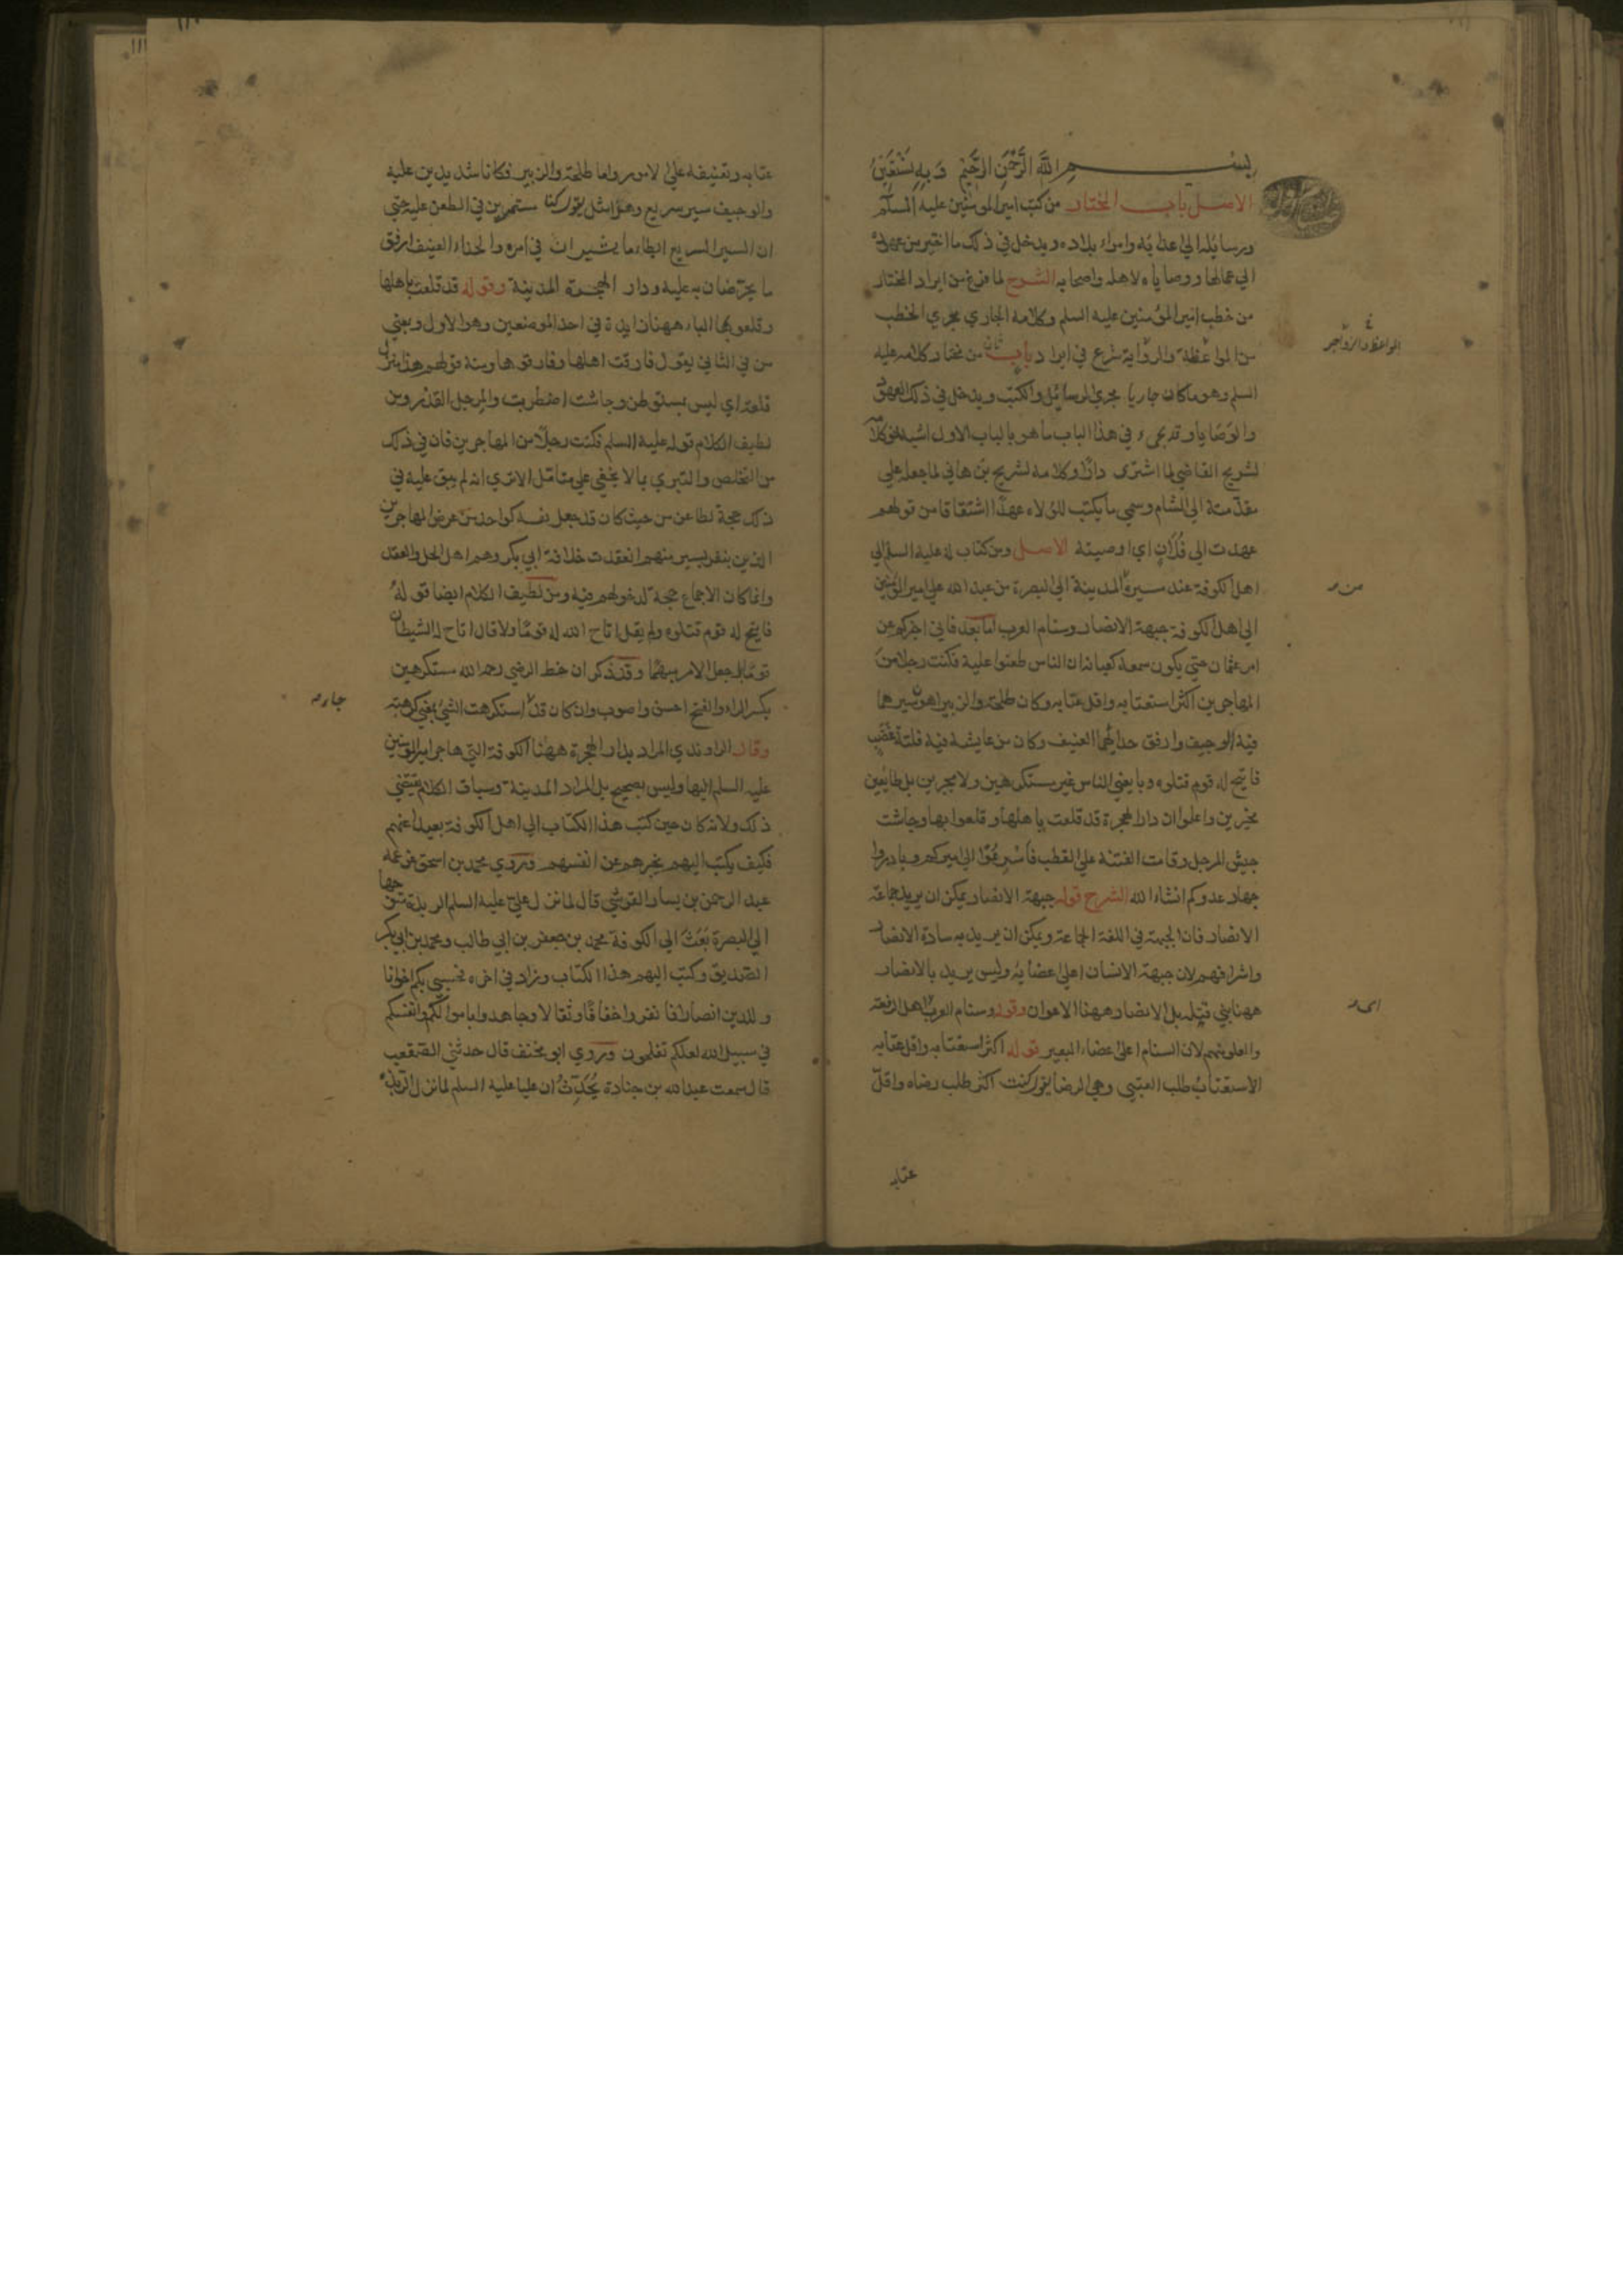 بسم الله الرَّحْمَنِ الرَّحِيْمِ وَبِهِ نَسْتَعِيْنُ
الاصل باب المختار من كتب امير المومنين عليه السلم
ورسائله الي اعدائه وامراء بلاده ويدخل في ذلك ما اختير من عهوده
الي عماله ووصاياه لاهله واصحابه الشرح لما فرغ من ايراد المختار
من خطب امير المؤمنين عليه السلم وكلامه الجاري مجري الخطب
من المواعظ والزواجر شرع في ايراد باب ثان من مختار كلامه عليه
السلم وهو ما كان جاريا مجري الرسائل والكتب ويدخل في ذلك العهود
والوصايا وقد يجيء في هذا الباب ما هو بالباب الاول اشبه نحو كلامه
لشريح القاضي لما اشترى دارًا وكلامه لشريح بن هاني لما جعله علي
مقدّمته الي الشام وسمي ما يكتب للولاه عهدًا اشتقاقا من قولهم
عهدت الي فُلَانٍ اي اوصيته الاصل ومن كتاب له عليه السلم الي
اهل الكوفة عند مسيره من المدينة الي البصرة من عبد الله علي امير المؤمنين
الي اهل الكوفة جبهة الانصار وسنام العرب اما بعد فاني اخبركم عن
امر عثمان حتي يكون سمعه كعيانه ان الناس طعنوا عليه فكنت رجلا من
المهاجرين اكثر استعتابه واقل عتابه وكان طلحة والزبير اهون سيرهما
فيه الوجيف وارفق حدائهما العنيف وكان من عايشة فيه فلتة غضب
فاتيح له قوم قتلوه وبايعني الناس غير مستكرهين ولا مجبرين بل طايعين
مخيرين واعلموا ان دار الهجرة قد قلعت باهلها وقلعوا بها وجاشت
جيش المرجل وقامت الفتنة علي القطب فأسرِعُوا الي اميركم وبادروا
جهاد عدوكم انشاء الله الشرح قوله جبهة الانصار يمكن ان يريد جماعة
الانصار فان الجبهة في اللغة الجماعة ويمكن ان يريد به سادة الانصار
واشرافهم لان جبهة الانسان اعلي اعضائه وليس يريد بالانصار
ههنا بني قيله بل الانصار ههنا الاعوان وقوله وسنام العرب اي اهل الرفعة
والعلو منهم لان السنام اعلي اعضاء البعير قوله اكثر استعتابه واقل عتابه
الاستعتابُ طلب العتبي وهي الرضا يقول كنت اكثر طلب رضاه واقلّ
عتابه
المواعظ والزواجر
من
عتابه وتعنيفه علي الامور واما طلحة والزبير فكانا شديدين عليه
والوجيف سير سريع وهذا مثل يقول كانا مستمرين في الطعن عليه حتي
ان السير السريع ابطاء ما يسيران في امره والحداء العنيف ارفق
ما يحرّضان به عليه ودار الهجرة المدينة وقوله قد قلعت باهلها
وقلعوا بها الباء ههنا زايدة في احد الموضعين وهو الاول وبمعني
من في الثاني يقول فارقت اهلها وفارقوها ومنه قولهم هذا منزل
قلعة اي ليس بمستوطن وجاشت اضطربت والمرجل القدر ومن
لطيف الكلام قوله عليه السلم فكنت رجلًا من المهاجرين فان في ذلك
من التخلص والتبري ما لا يخفي علي متامّل الا تري انه لم يبق عليه في
ذلك حجة لطاعن من حيث كان قد جعل نفسه كواحد من عرض المهاجرين
الذين بنفر يسير منهم انعقدت خلافة ابي بكر وهم اهل الحل والعقد
وانما كان الاجماع حجة لدخولهم فيه ومن لطيف الكلام ايضا قولهُ
فاتيح له قوم قتلوه ولم يقل اتاح الله له قومًا ولا قال اتاح له الشيطان
قومًا بل جعل الامر مبهمًا وقد ذكر ان خط الرضي رحمه الله مستكرهين
بكسر الراء والفتح احسن واصوب وان كان قد استكرهت الشئ بمعني كرهته
وقال الراوندي المراد بدار الهجرة ههنا الكوفة التي هاجر امير المؤمنين
عليه السلم اليها وليس بصحيح بل المراد المدينة وسياق الكلام يقتضي
ذلك ولانه كان حين كتب هذا الكتاب الي اهل الكوفة بعيدا عنهم
فكيف يكتب اليهم يخبرهم عن انفسهم وروي محمد بن اسحق عن عمه
عبد الرحمن بن يسار القرشي قال لما نزل علي عليه السلم الربذة متوجها
الي البصرة بَعَثَ الي الكوفة محمد بن جعفر بن ابي طالب ومحمد بن ابي بكر
الصديق وكتب اليهم هذا الكتاب وزاد في اخره فحسبي بكم اخوانا
وللدين انصارا فانفروا خفافًا وثقالا وجاهدوا باموالكم وانفسكم
في سبيل الله لعلكم تفلحون وروي ابو مخنف قال حدثني الصقعب
قال سمعت عبد الله بن جنادة يُحَدِّثُ ان عليا عليه السلم لما نزل الربذة
جاء